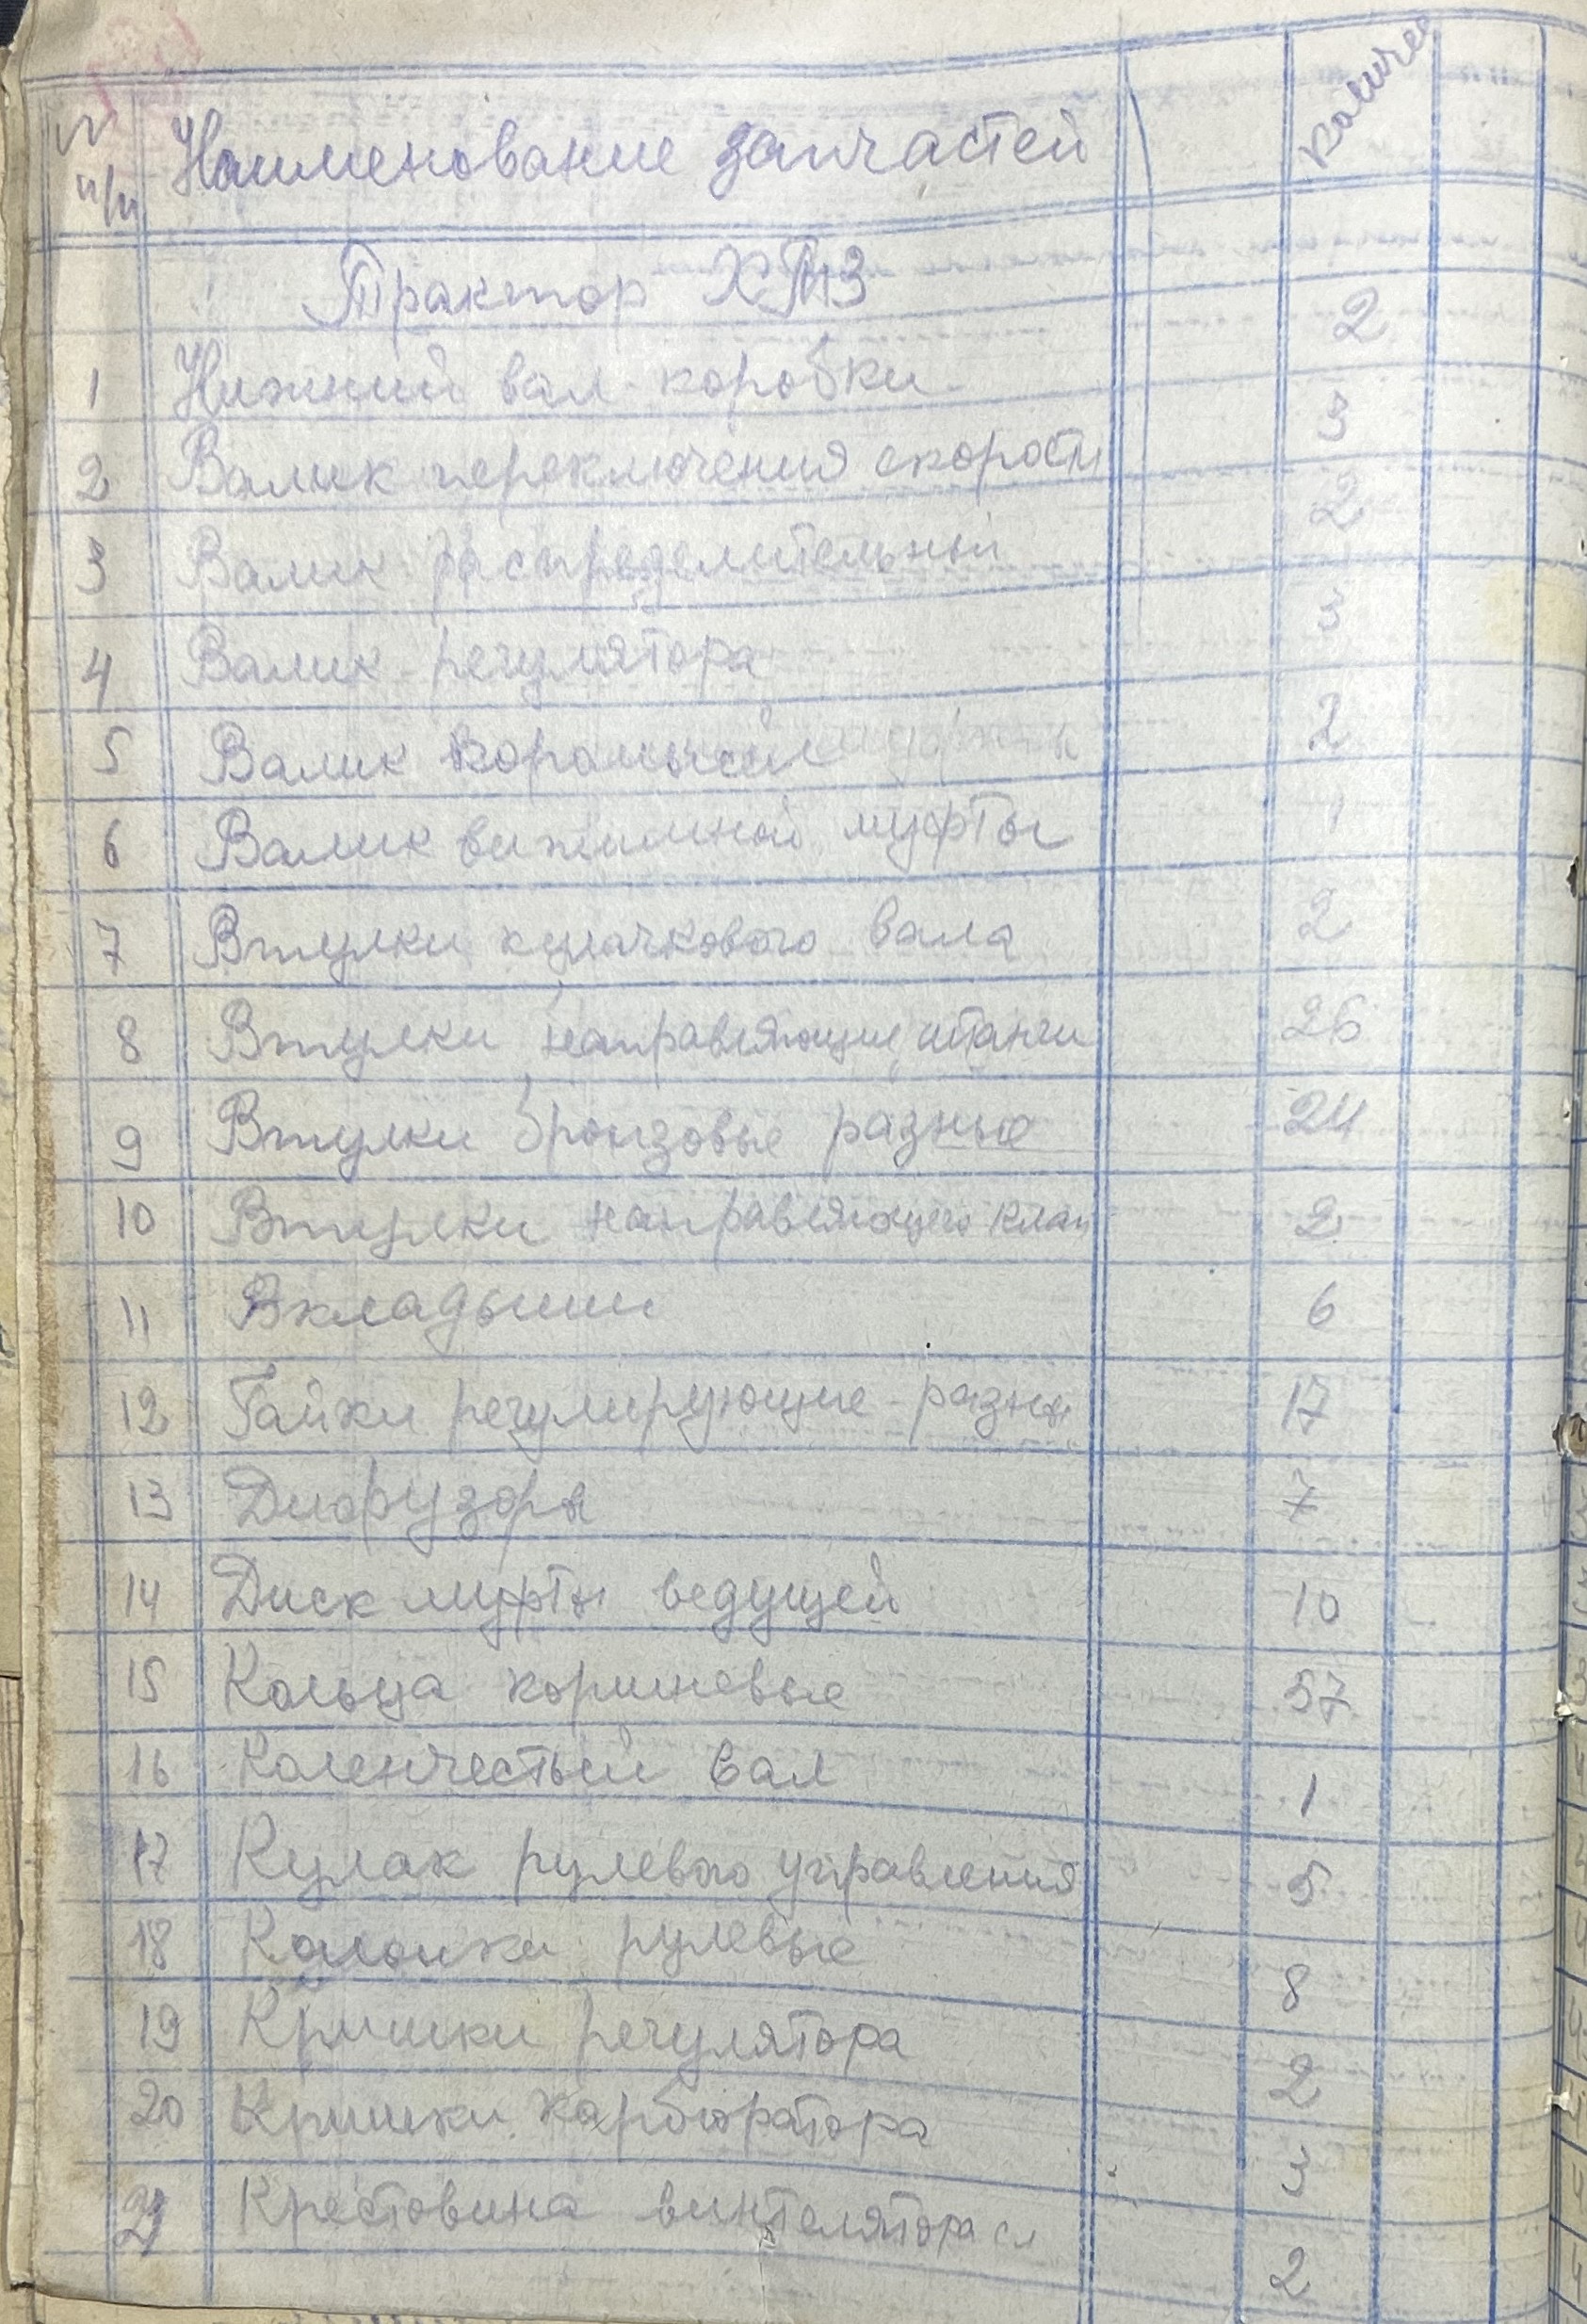 N п/п Наименование запчастей Количе
Трактор ХТЗ
1 Нижний вал коробки 2
2 Валик переключения скорости 3
3 Валик распределительный 2
4 Валик регулятора 3
5 Валик коромысел 2
6 Валик вижимной муфты 1
7 Втулки кулачкового вала 2
8 Втулки направляющие штанги 26
9 Втулки бронзовые разные 24
10 Втулки направляющего клап 2
11 Вкладыши 6
12 Гайки регулирующие разны 17
13 Диффузоры 7
14 Диск муфты ведущей 10
15 Кольца поршневые 57
16 Коленчестый вал 1
17 Кулак рулевого управления 5
18 Колонки рулевые 8
19 Кришки регулятора 2
20 Кришки карбюратора 3
21 Крестовина винтелятора 2